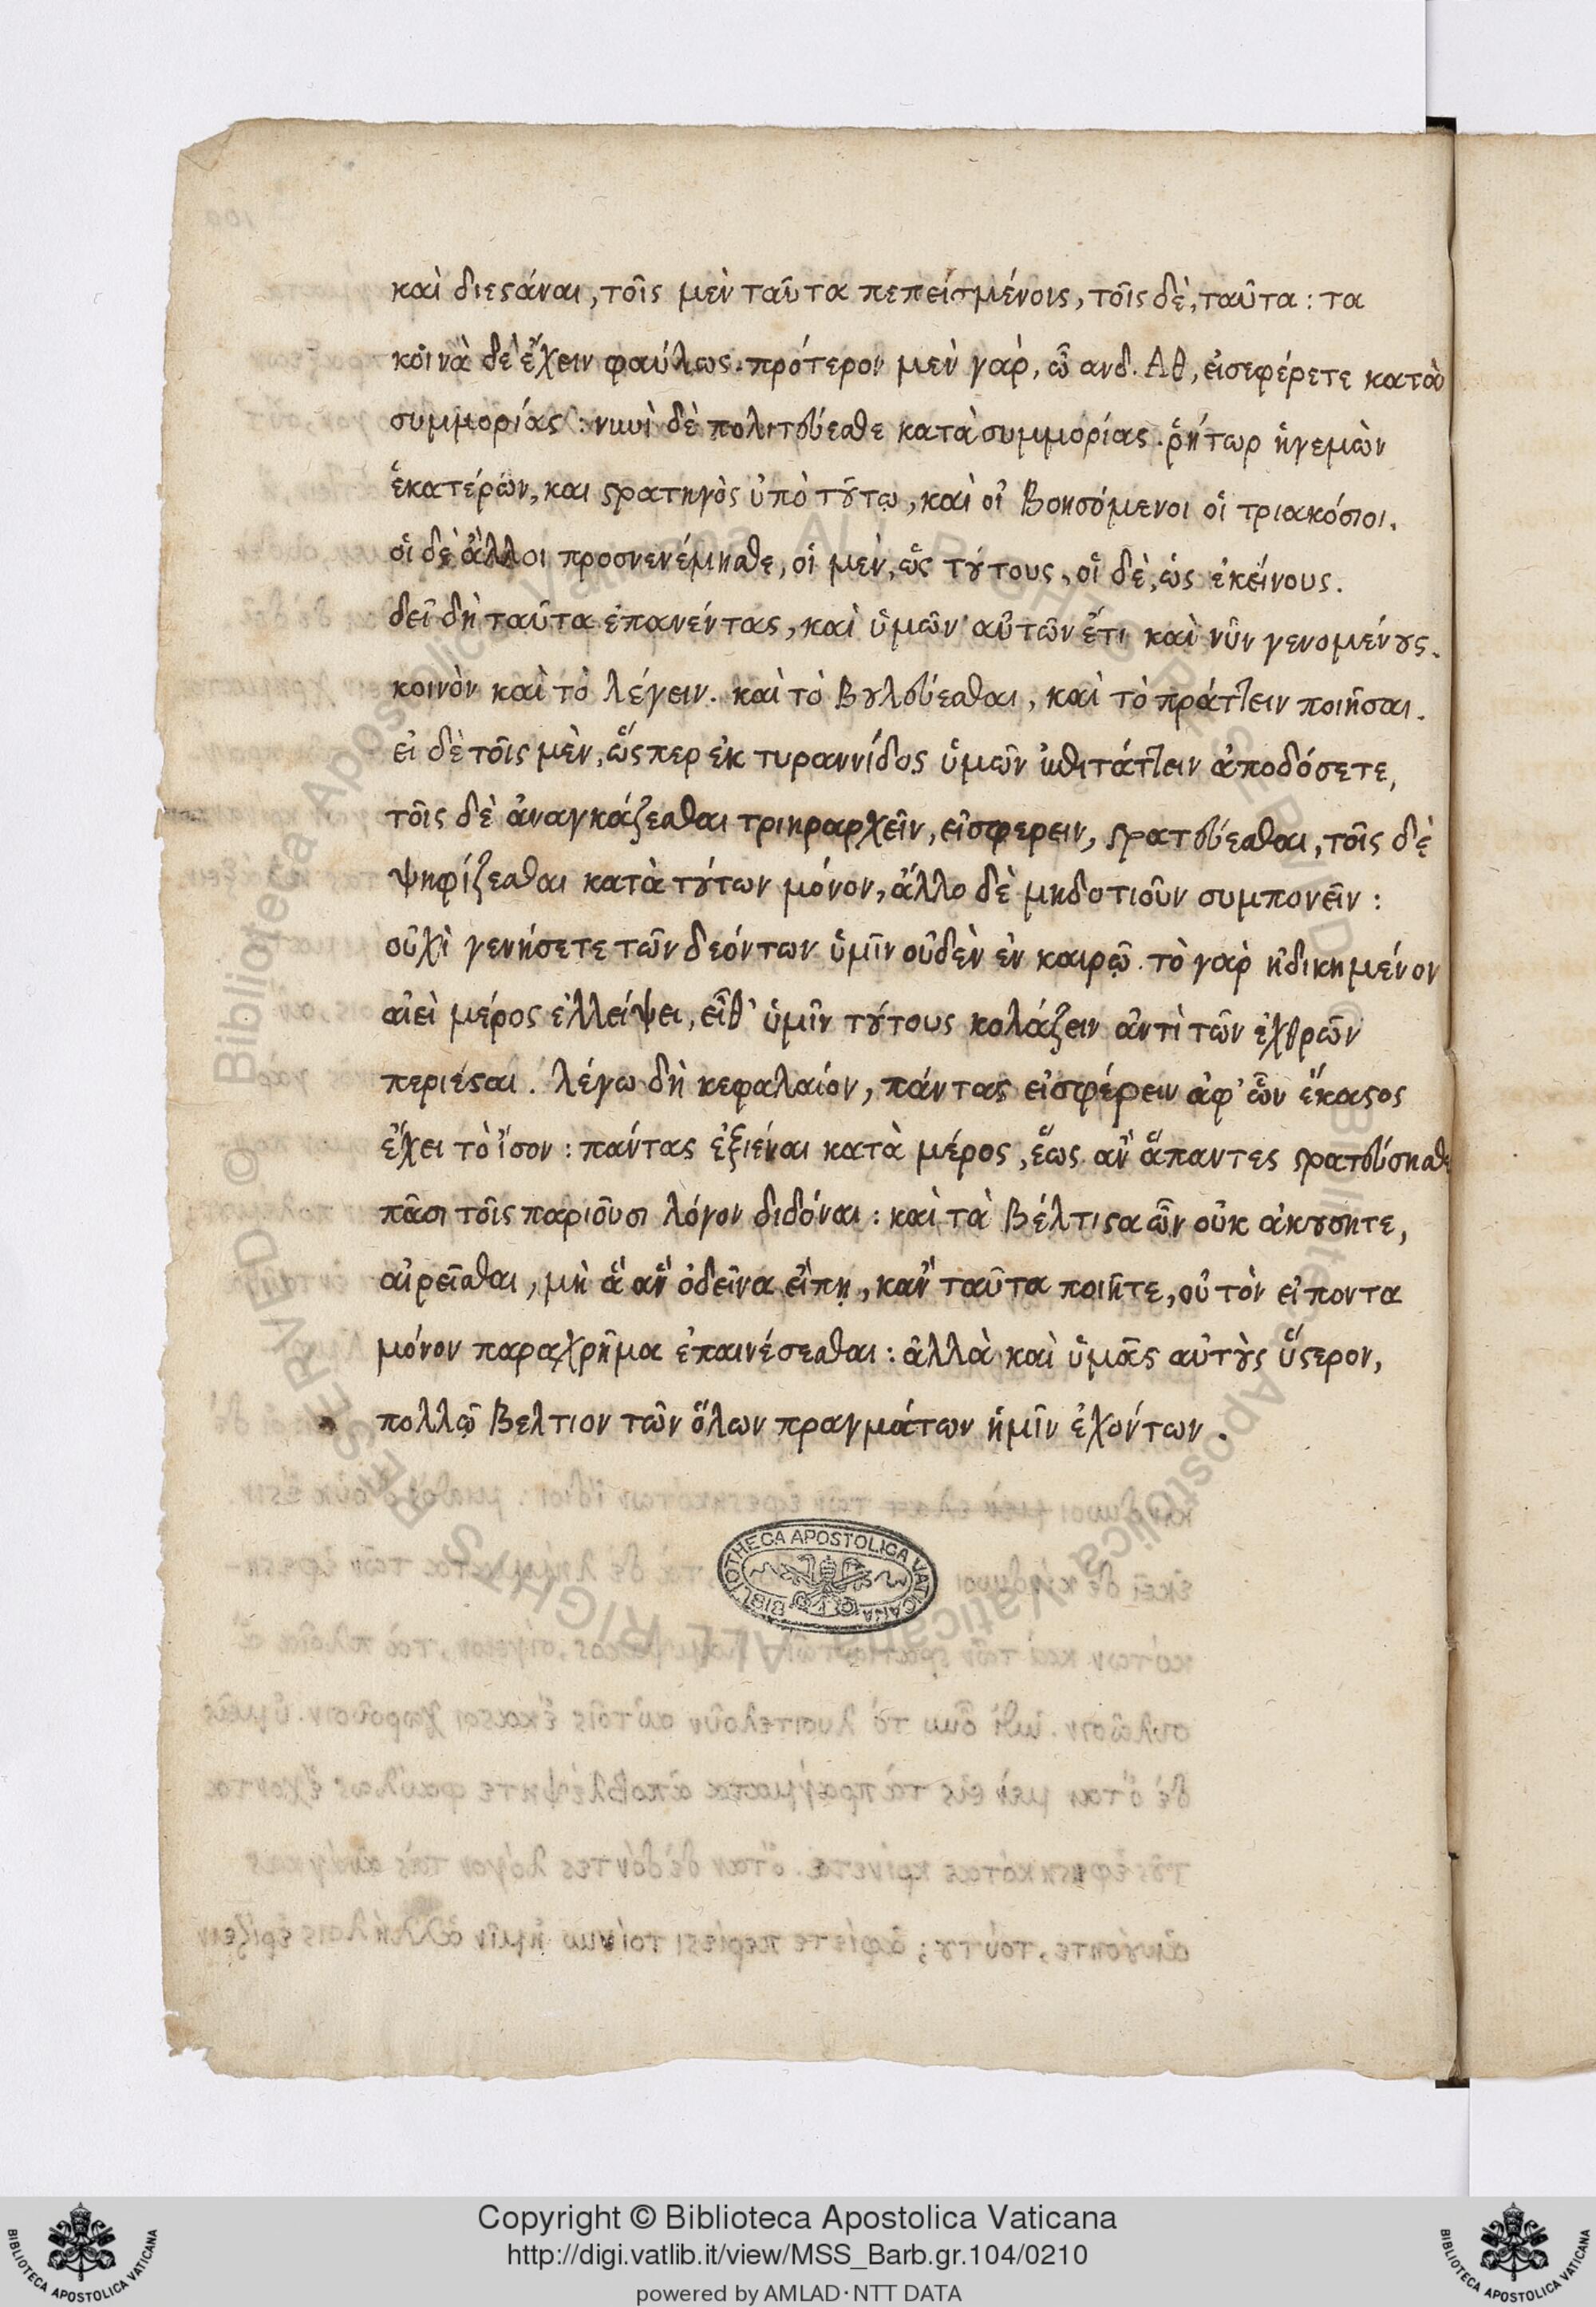 καὶ διεϛάναι, τοῖς μὲν ταῦτα πεπεισμένοις, τοῖς δὲ, ταῦτα: τα
κοινὰ δὲ ἔχειν φαύλως. πρότερον μὲν γὰρ, ὦ ανδ. Αθ, εἰσεφέρετε κατὰ
συμμορίας: νυνὶ δὲ πολιτεύεσθε κατὰ συμμορίας. ῥήτωρ ἡγεμὼν
ἑκατέρων, και ϛρατηγὸς ὑπὸ τȣ́τῳ, καὶ οἱ βοησόμενοι οἱ τριακόσιοι.
οἱ δὲ ἄλλοι προσνενέμησθε, οἱ μὲν, ὡς τȣ́τους, οἱ δὲ, ὡς ἐκείνους.
δεῖ δὴ ταῦτα ἐπανέντας, καὶ ὑμῶν αὐτῶν ἔτι καὶ νῦν γενομένȣς.
κοινὸν καὶ τὸ λέγειν. καὶ τὸ βȣλεύεσθαι, καὶ τὸ πράττειν ποιῆσαι.
εἰ δὲ τοῖς μὲν, ὥςπερ ἐκ τυραννίδος ὑμῶν ἐπιτάττειν ἀποδόσετε,
τοῖς δὲ ἀναγκάζεσθαι τριηραρχεῖν, εἰσφερειν, ϛρατεύεσθαι, τοῖς δὲ
ψηφίζεσθαι κατὰ τȣ́των μόνον, ἄλλο δὲ μηδοτιοῦν συμπονεῖν:
οὐχὶ γενήσετε τῶν δεόντων ὑμῖν οὐδὲν ἐν καιρῷ. τὸ γὰρ ἠδικημένον
αἰεὶ μέρος ἐλλείψει, εἶθ' ὑμῖν τȣ́τους κολάζειν ἀντὶ τῶν ἐχθρῶν
περιέϛαι. λέγω δὴ κεφαλαίον, πάντας εἰσφέρειν ἀφ' ὧν ἕκαϛος
ἔχει τὸ ἴσον: παντας ἐξιέναι κατὰ μέρος, ἕως ἂν ἅπαντες ϛρατεύσησθε
πᾶσι τοῖς παριοῦσι λόγον διδόναι: καὶ τὰ βέλτιϛα ὧν οὐκ ἀκȣσητε,
αἱρεῖσθαι, μὴ ἃ ἂν ὁδεῖνα εἴπῃ, κἂν ταῦτα ποιῆτε, οὐ τὸν εἰποντα
μόνον παραχρῆμα ἐπαινέσεσθαι: ἀλλὰ καὶ ὑμᾶς αὐτȣ̀ς ὕϛερον,
πολλῷ βελτιον τῶν ὅλων πραγμάτων ἡμῖν ἐχόντων.
BIBLIOTHECA APOSTOLICA VATICANA
Copyright © Biblioteca Apostolica Vaticana
http://digi.vatlib.it/view/MSS_Barb.gr.104/0210
powered by AMLAD·NTT DATA